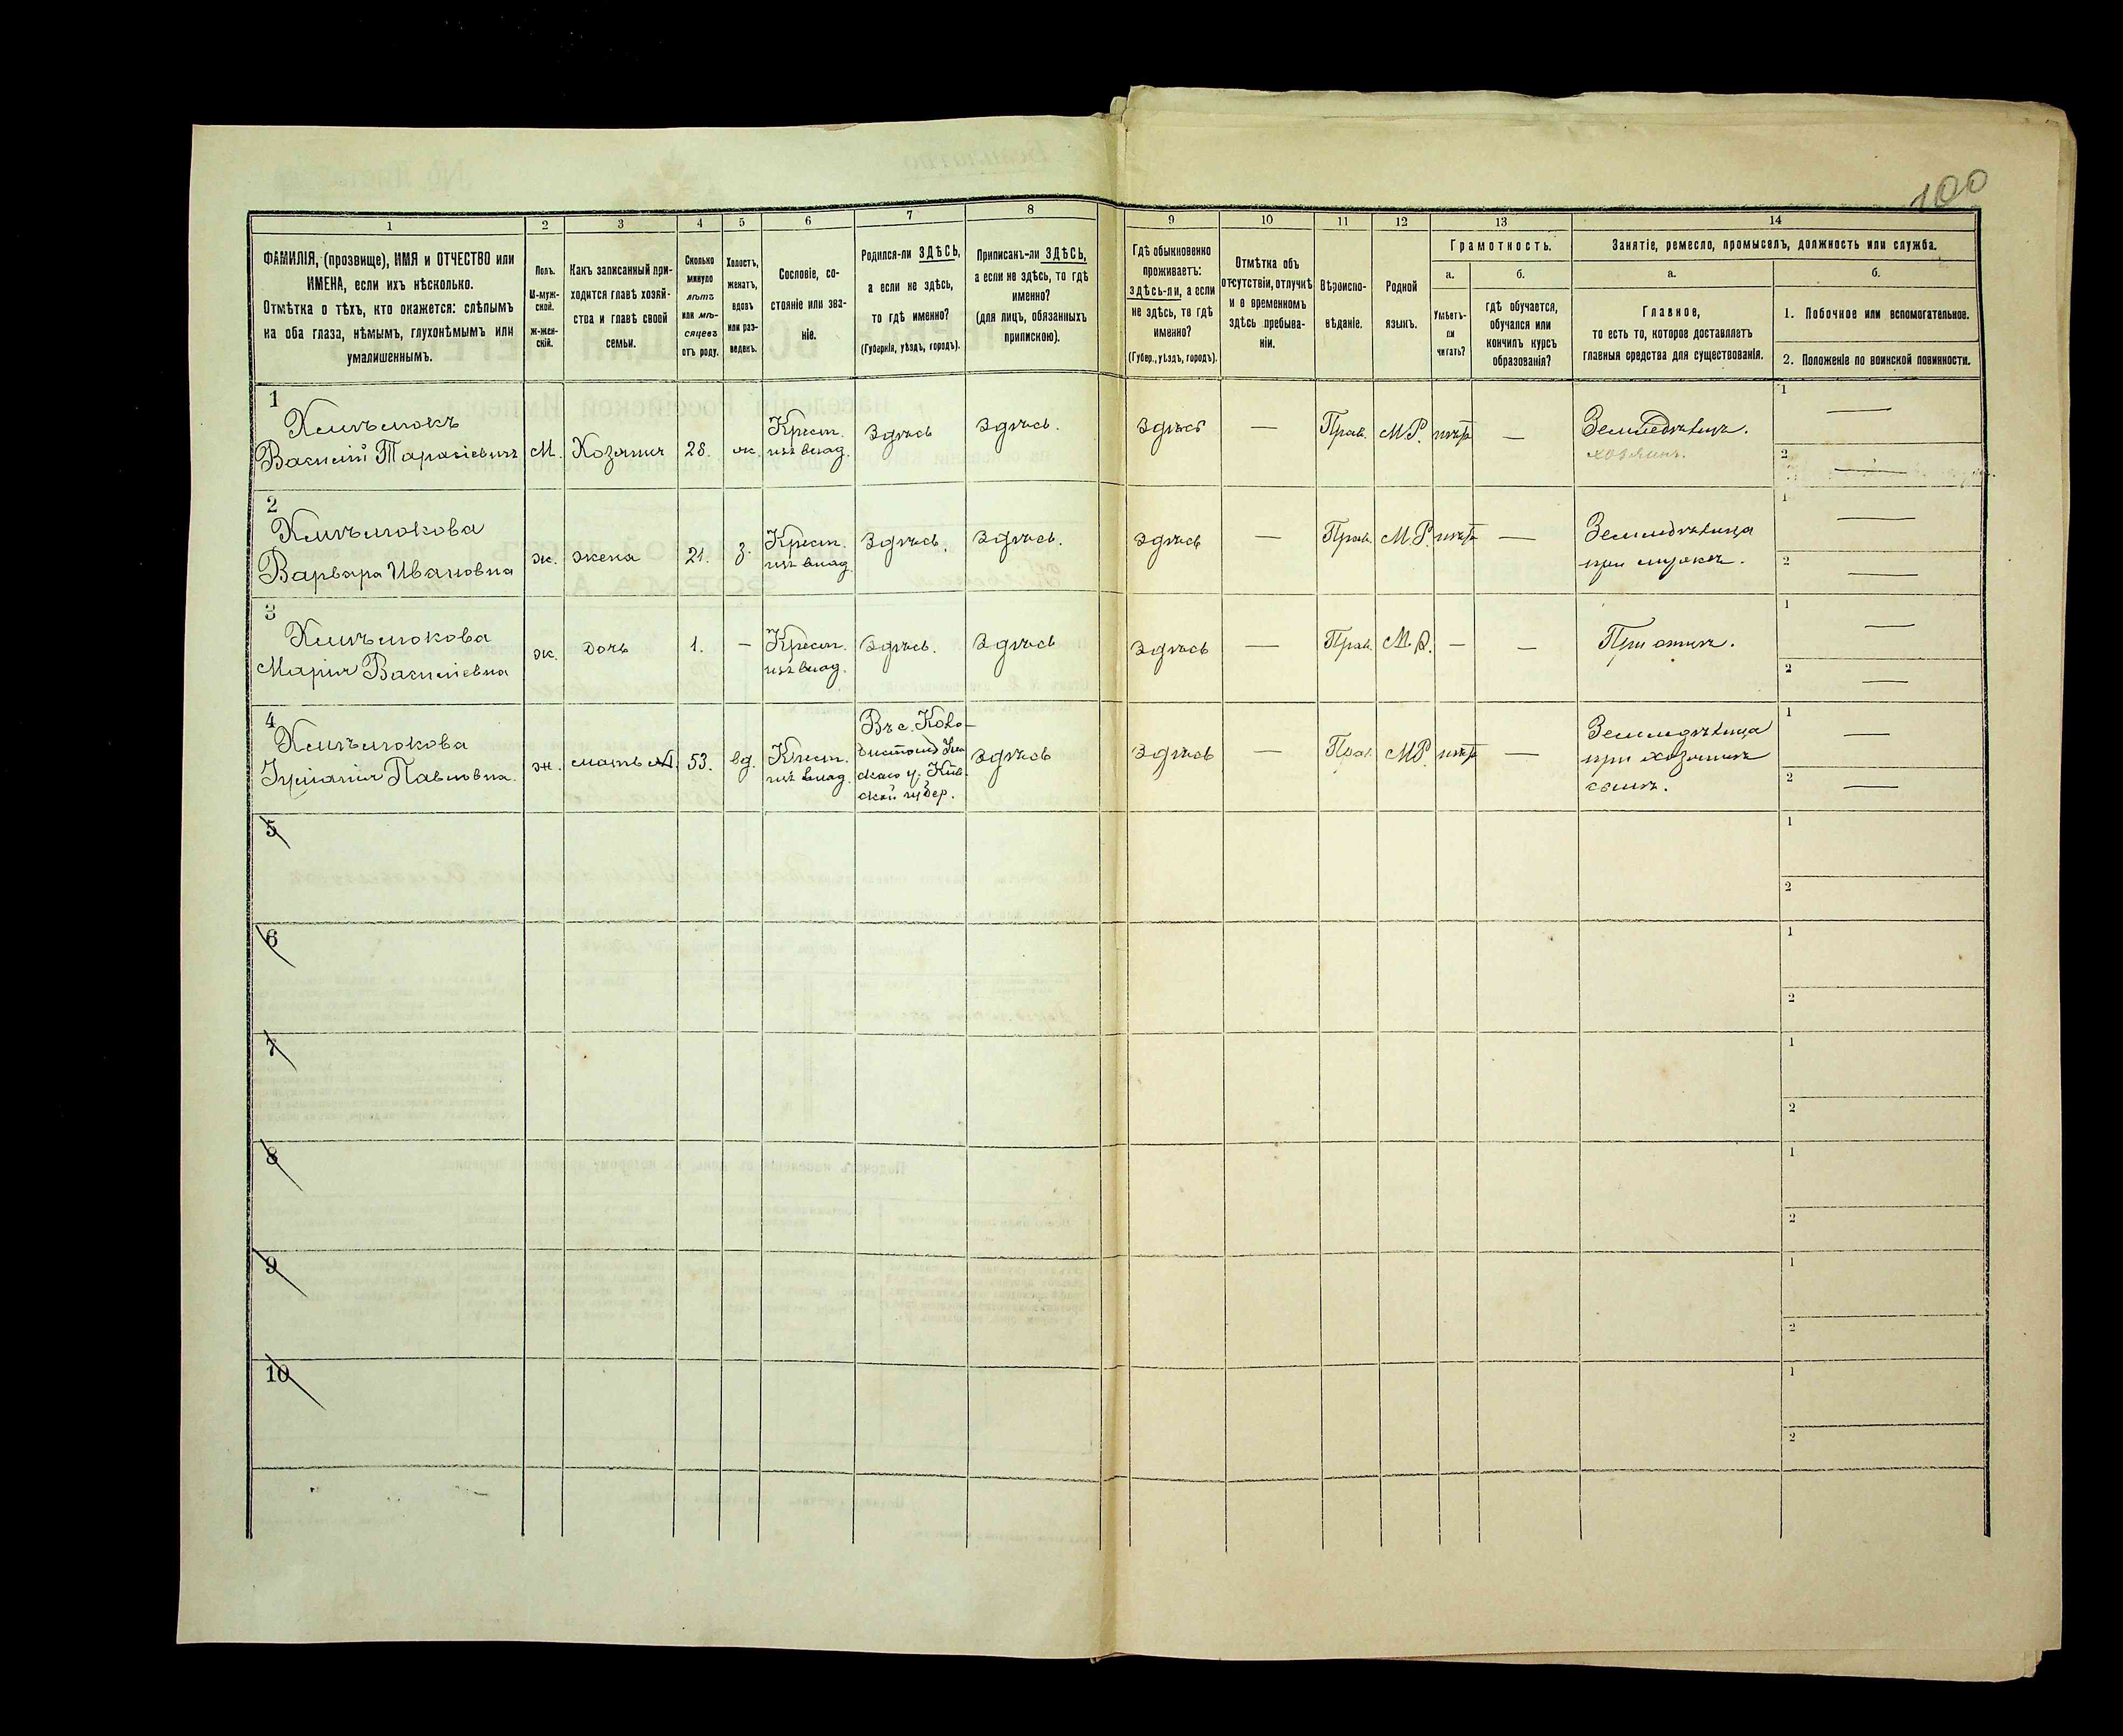 100
1
2
3
4
5
6
7
8
9
10
11
12
13
14
ФАМИЛІЯ, (прозвище), ИМЯ и ОТЧЕСТВО или
ИМЕНА, если ихъ нѣсколько.
Отмѣтка о тѣхъ, кто окажется: слѣпымъ
на оба глаза, нѣмымъ, глухонѣмымъ или
умалишеннымъ.
Полъ.
М-муж-
ской.
Ж-жен-
скій.
Какъ записанный при-
ходится главѣ хозяй-
ства и главѣ своей
семьи.
Сколько
минуло
лѣтъ
или мѣ-
сяцевъ
отъ роду.
Холостъ,
женатъ,
вдовъ
или раз-
веденъ.
Сословіе, со-
стояніе или зва-
ніе.
Родился-ли ЗДѢСЬ,
а если не здѣсь,
то гдѣ именно?
(Губернія, уѣздъ, городъ).
Приписанъ-ли ЗДѢСЬ,
а если не здѣсь, то гдѣ
именно?
(для лицъ, обязанныхъ
припискою).
Гдѣ обыкновенно
проживаетъ:
здѣсь-ли, а если
не здѣсь, то гдѣ
именно?
(Губер., уѣздъ, городъ).
Отмѣтка объ
отсутствіи, отлучкѣ
и о временномъ
здѣсь пребыва-
ніи.
Вѣроиспо-
вѣданіе.
Родной
языкъ.
Грамотность.
а.
б.
Умѣетъ-
ли
читать?
гдѣ обучается,
обучался или
кончилъ курсъ
образованія?
Занятіе, ремесло, промыселъ, должность или служба.
а.
б.
Главное,
то есть то, которое доставляетъ
главныя средства для существованія.
1. Побочное или вспомогательное.
2. Положеніе по воинской повинности.
1
Василій Тарасіевичъ
М.
Хозяинъ
28.
ж.
Крест.
изъ влад.
Здѣсь
Здѣсь.
Здѣсь
—
Прав.
М.Р.
нѣтъ
—
Земледѣлецъ.
хозяинъ.
1
—
2
—
2
Варвара Ивановна
ж.
жена
21.
з.
Крест.
изъ влад.
Здѣсь.
Здѣсь.
Здѣсь
—
Прав.
М.Р.
нѣтъ
—
Земледѣлица
при мужѣ.
1
—
2
—
3
Марія Василіевна
ж.
дочь
1.
—
Крест.
изъ влад.
Здѣсь.
Здѣсь
Здѣсь
—
Прав.
М.Р.
—
—
При отцѣ.
1
—
2
—
4
Павловна.
ж.
мать
53.
вд.
Крест.
изъ влад.
Въ с.
скаго у. Кіев-
ской губер.
Здѣсь
Здѣсь
—
Прав.
М.Р.
нѣтъ
—
Земледѣлица
при хозяинѣ
сынѣ.
1
—
2
—
5
1
2
6
1
2
7
1
2
8
1
2
9
1
2
10
1
2